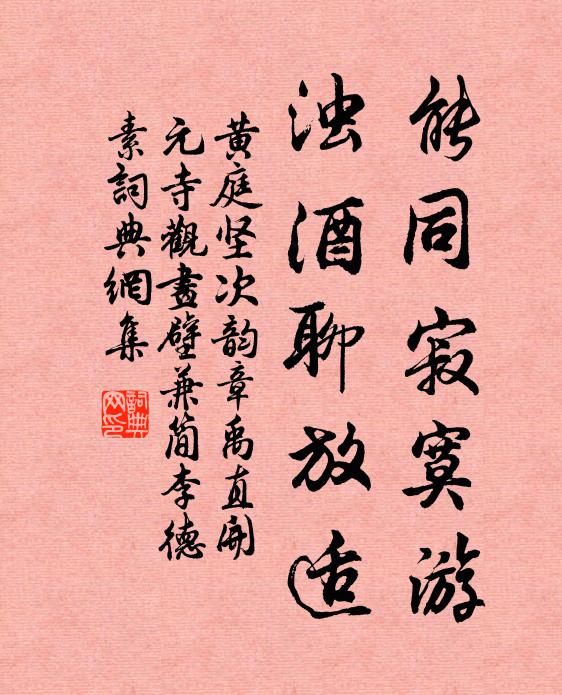 能同寂寞游
浊酒聊放适
黄庭坚次韵章禹直開
元寺觀畫壁兼简李德
素詞典網集
詞典网印